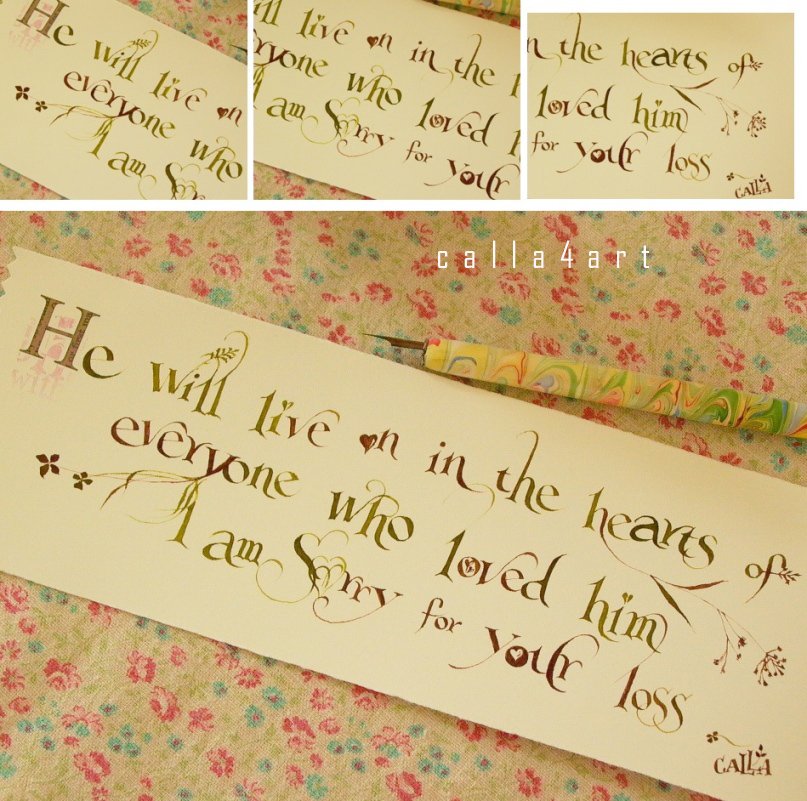 He will live on
everyone who
I am Sorry
ll live on in the
eryone who loved h
I am Sorry for your
n the hearts of
loved him
for your loss
CALLA
calla4art
He will live on in the hearts of
everyone who loved him
I am Sorry for your loss
CALLA